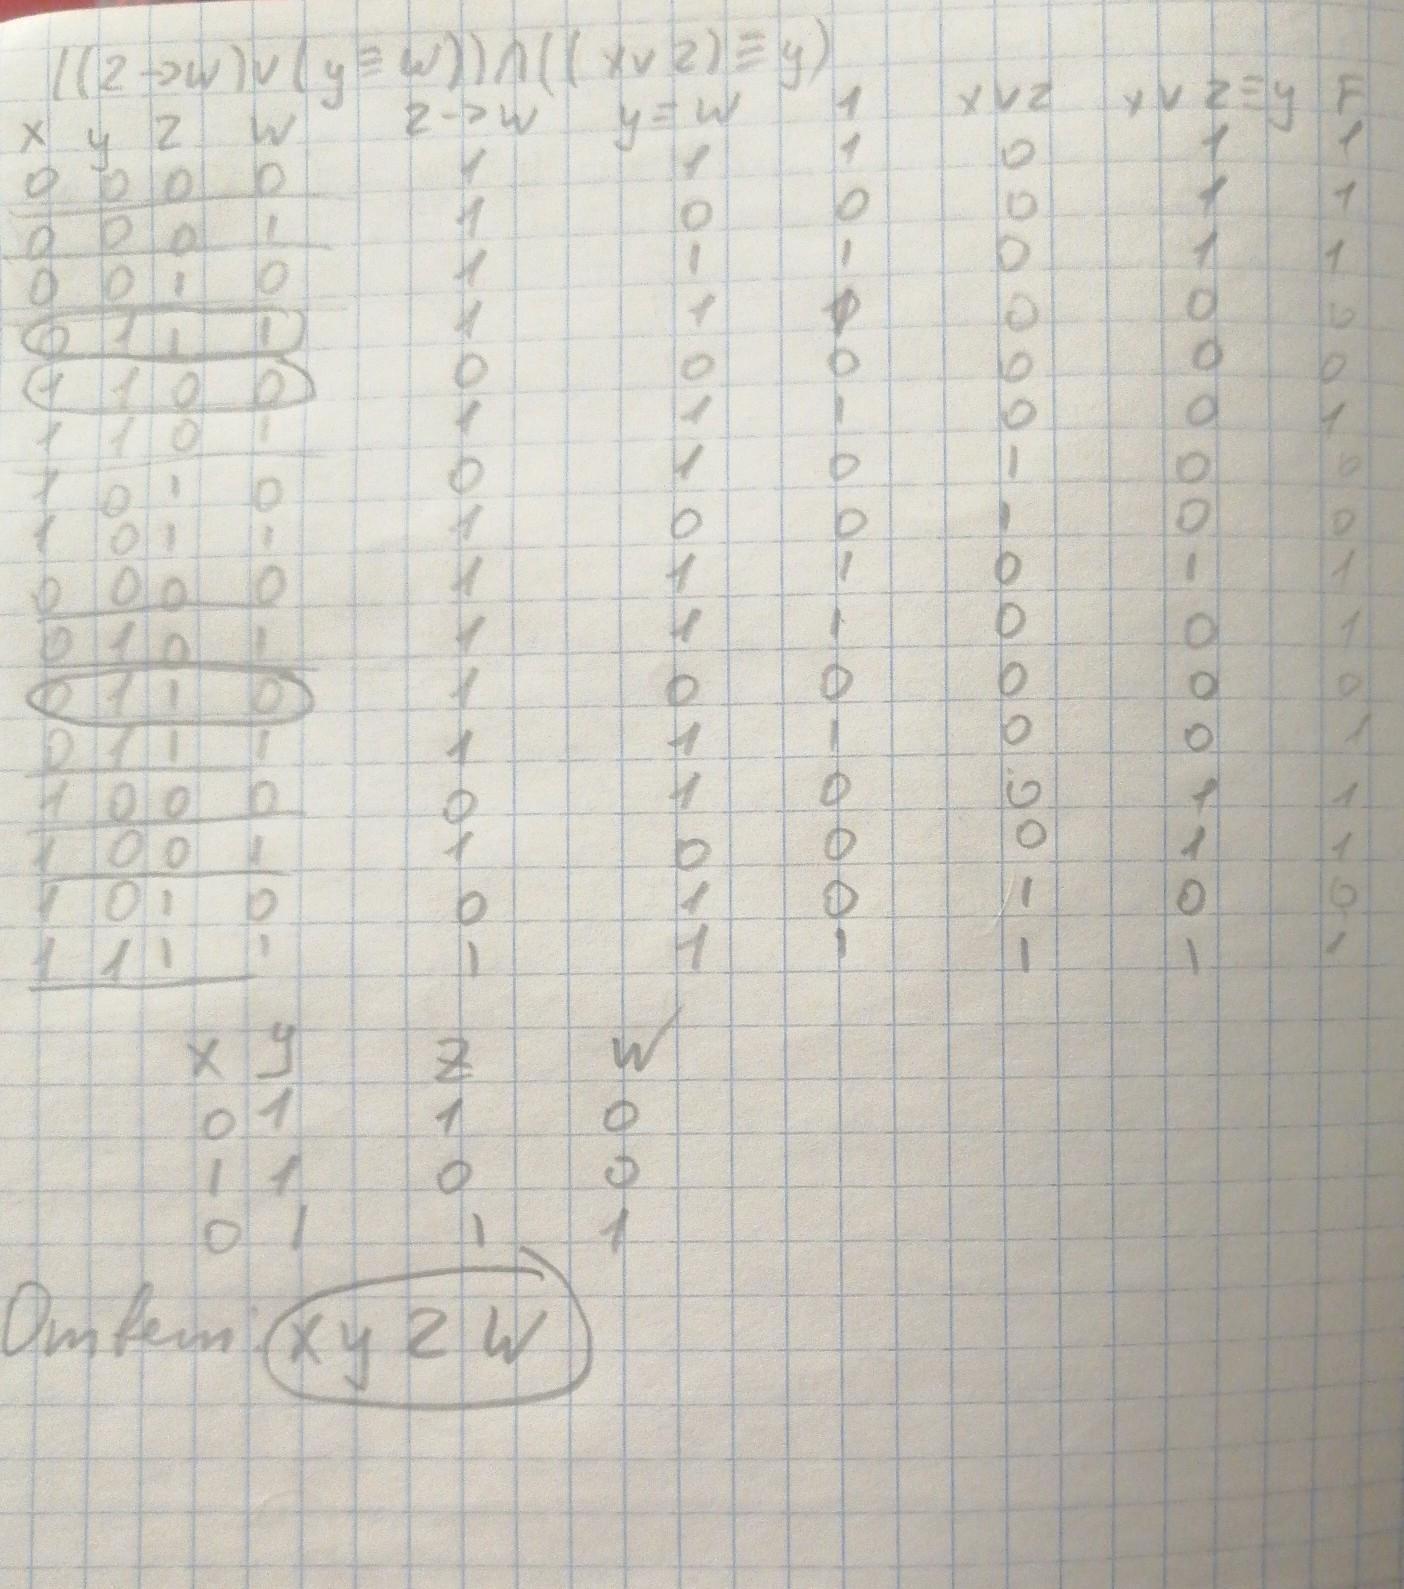 ((z→w)∨(y≡w))∧((x∨z)≡y)
x y z w z→w y≡w 1 x∨z x∨z≡y F
0 0 0 0 1 1 1 0 1 1
0 0 0 1 1 0 0 0 1 1
0 0 1 0 1 1 1 0 1 1
0 1 1 1 1 1 0 0 0
1 1 0 0 0 0 0 0 0 0
1 1 0 1 1 1 1 0 0 1
1 0 1 0 0 1 0 1 0 0
1 0 1 1 1 0 0 1 0 0
0 0 0 0 1 1 1 0 1 1
0 1 0 1 1 1 1 0 0 1
0 1 1 0 1 0 0 0 0 0
0 1 1 1 1 1 1 0 0 1
1 0 0 0 0 1 0 0 1 1
1 0 0 1 1 0 0 0 1 1
1 0 1 0 0 1 0 1 0 0
1 1 1 1 1 1 1 1 1 1
x y z w
0 1 1 0
1 1 0 0
0 1 1 1
Ответ: x y z w